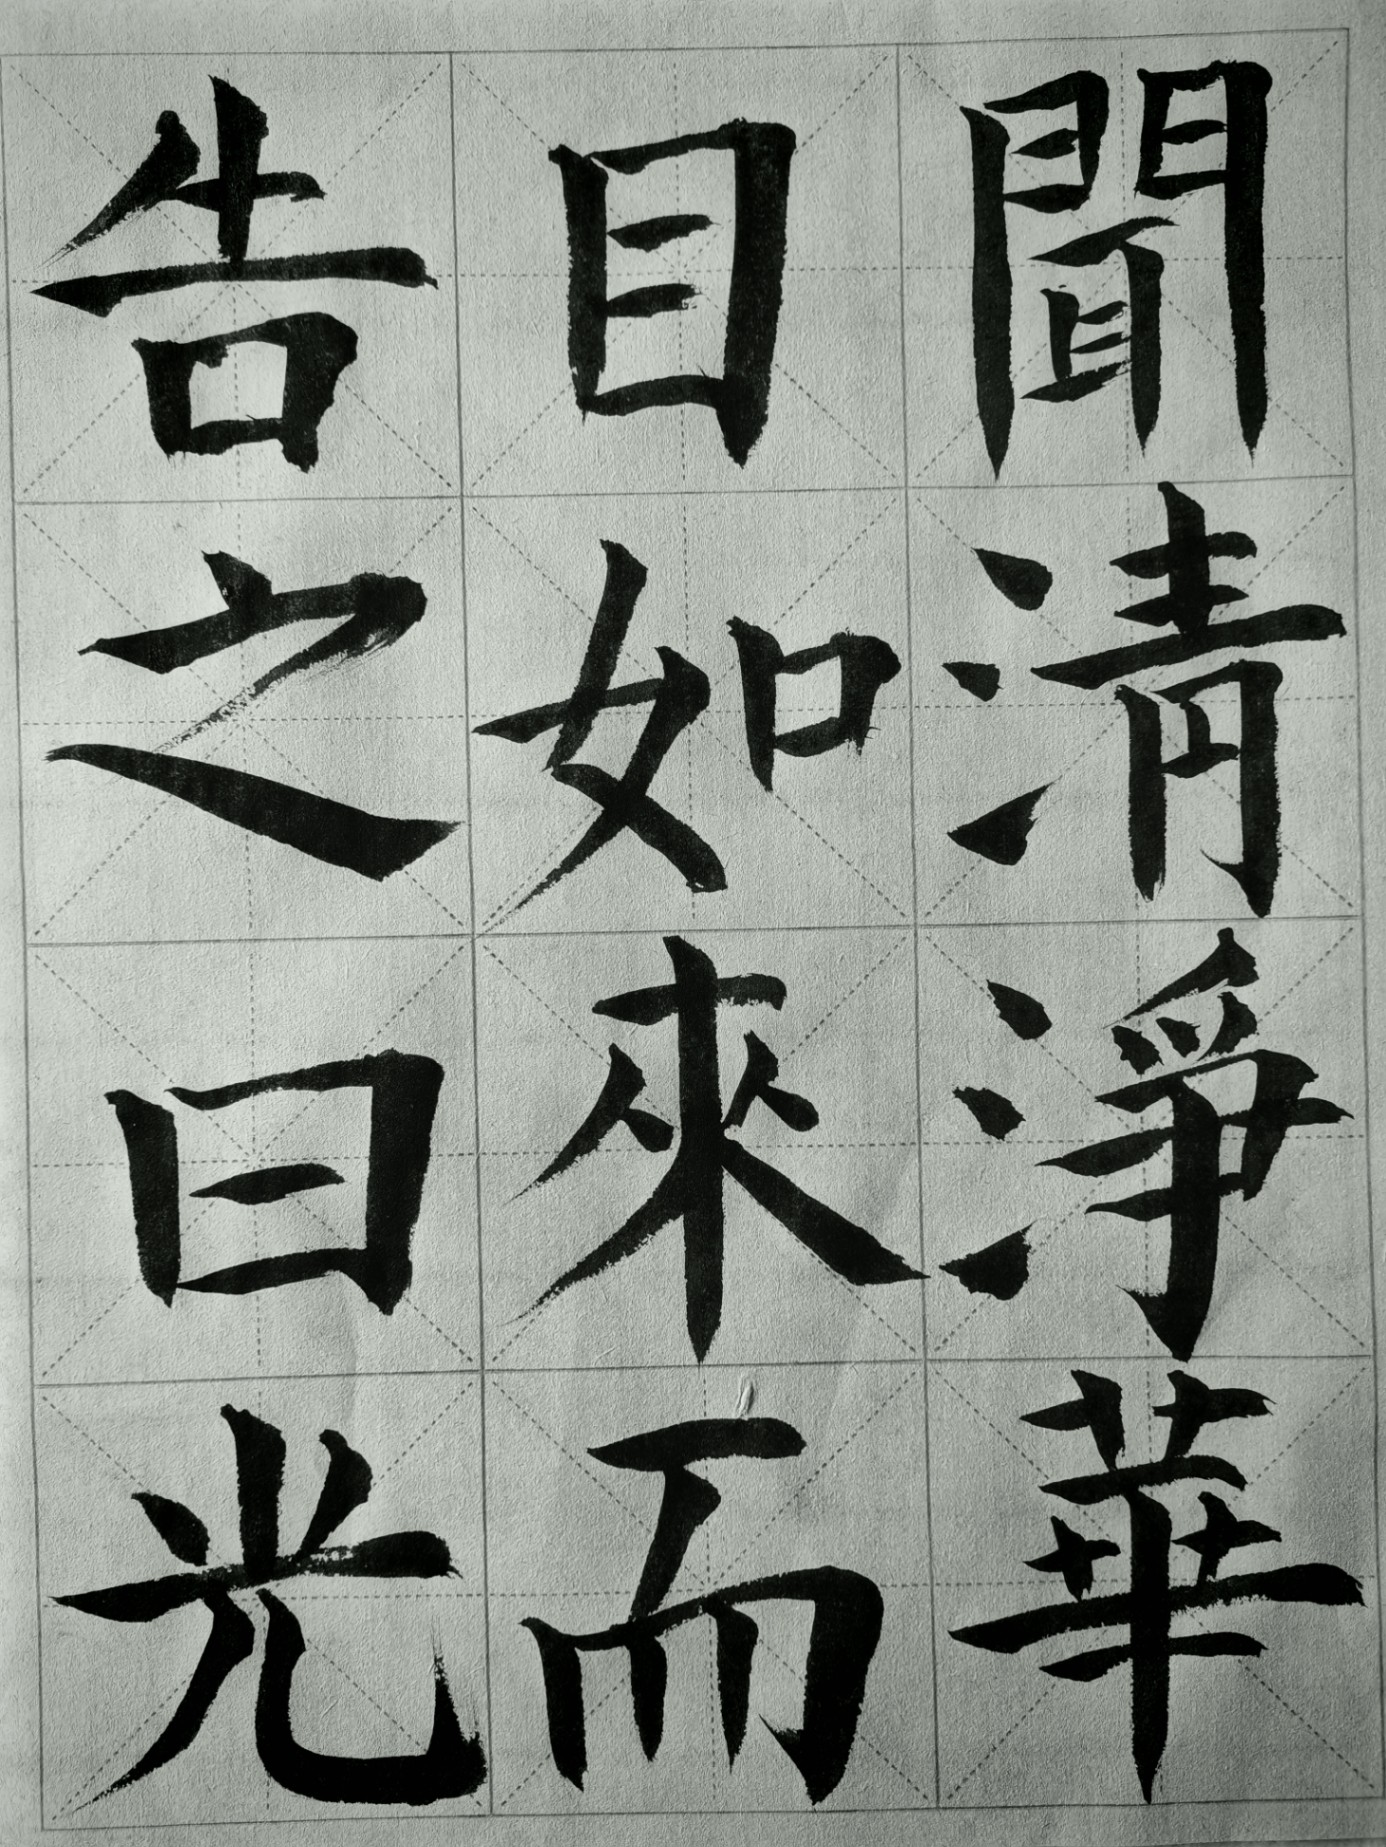 聞清淨華
目如來而
告之曰光